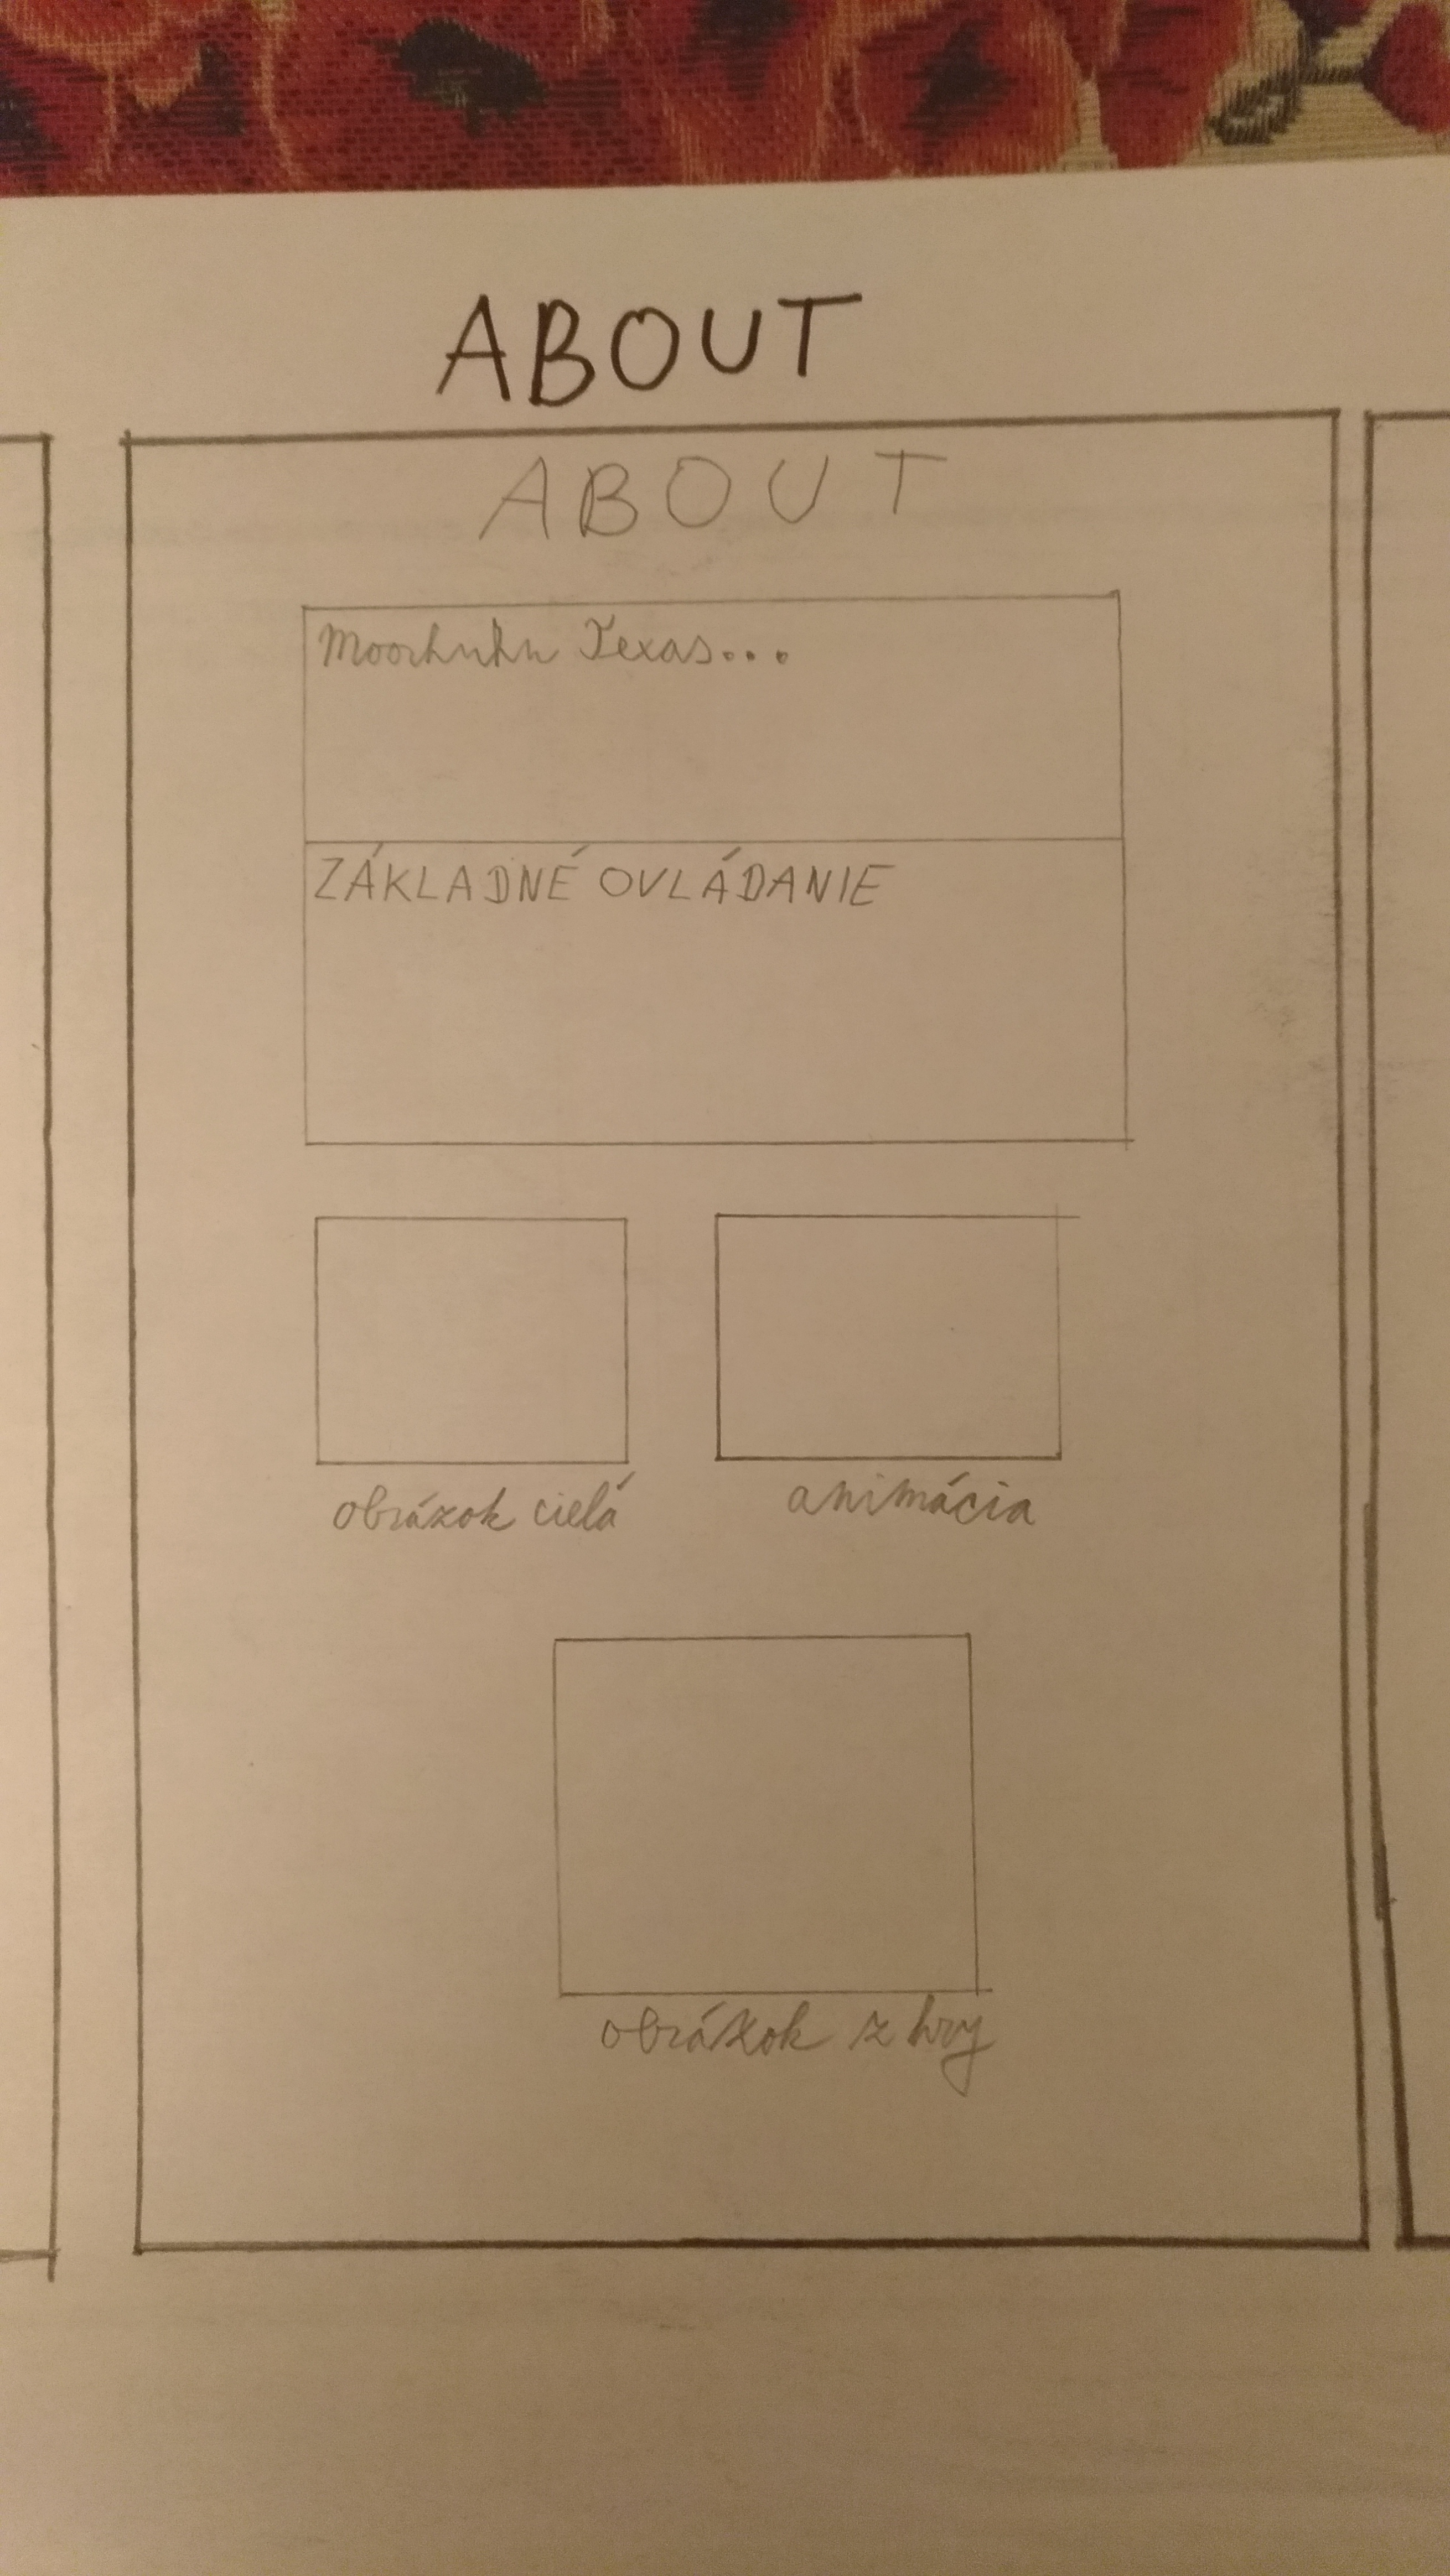 ABOUT
ABOUT
Moorhuhn Texas...
ZÁKLADNÉ OVLÁDANIE
obrázok cielá
animácia
obrázok z hry